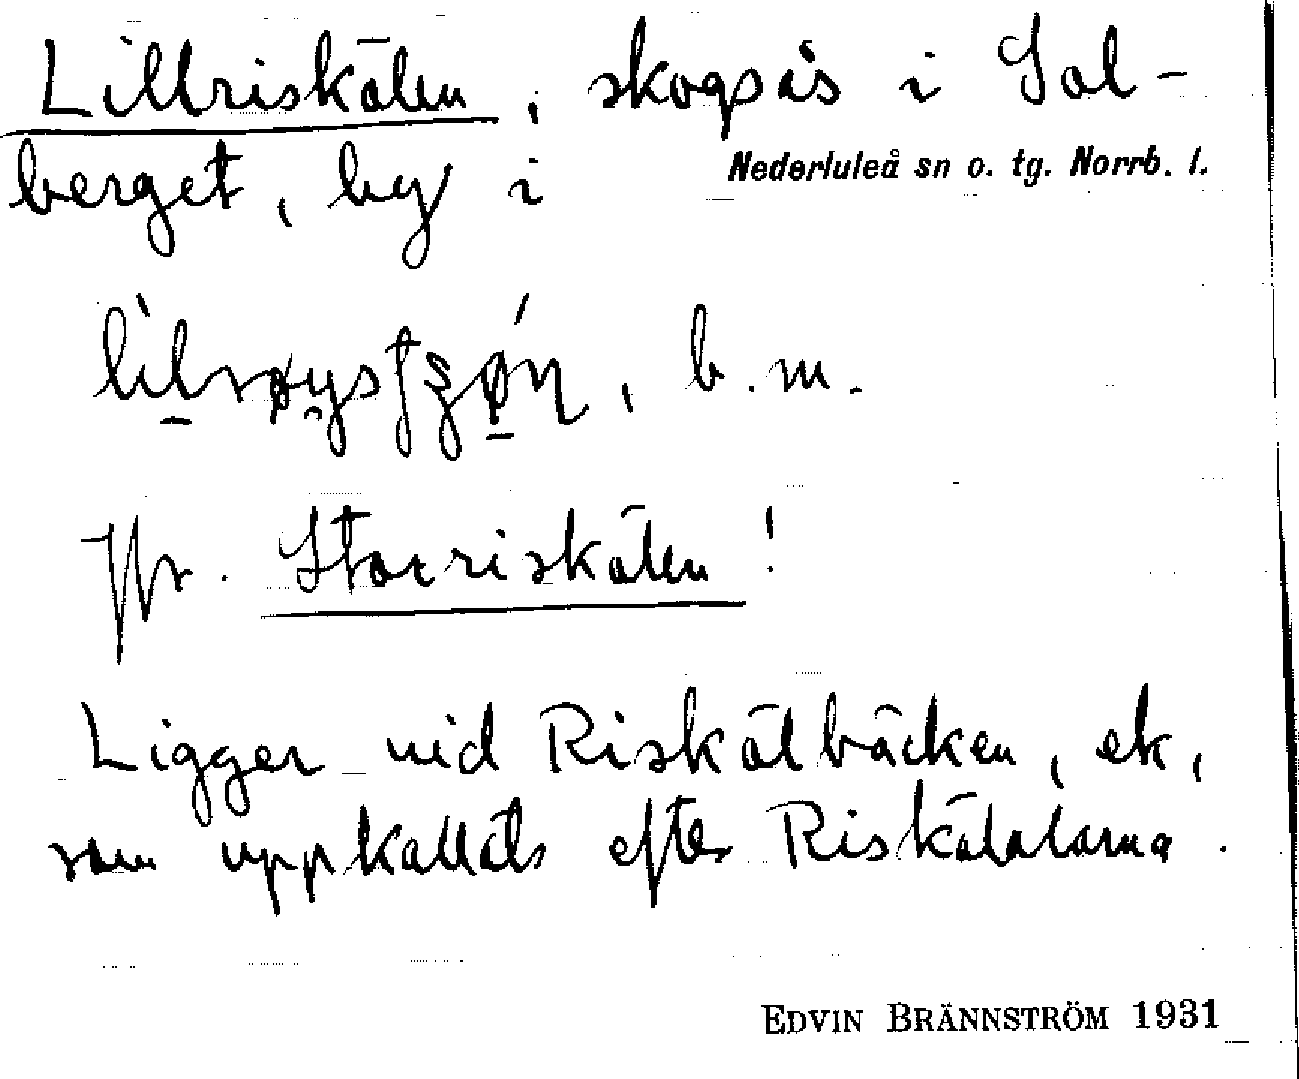 Lillriskälen, skogsås i Sol-
Nederluleå sn o. tg. Norrb. l.
berget, by i
b. m.
Jfr. Storriskälen!
Ligger vid Riskälbäcken, etc,
som uppkallats efter Riskälalarna.
EDVIN BRÄNNSTRÖM 1931